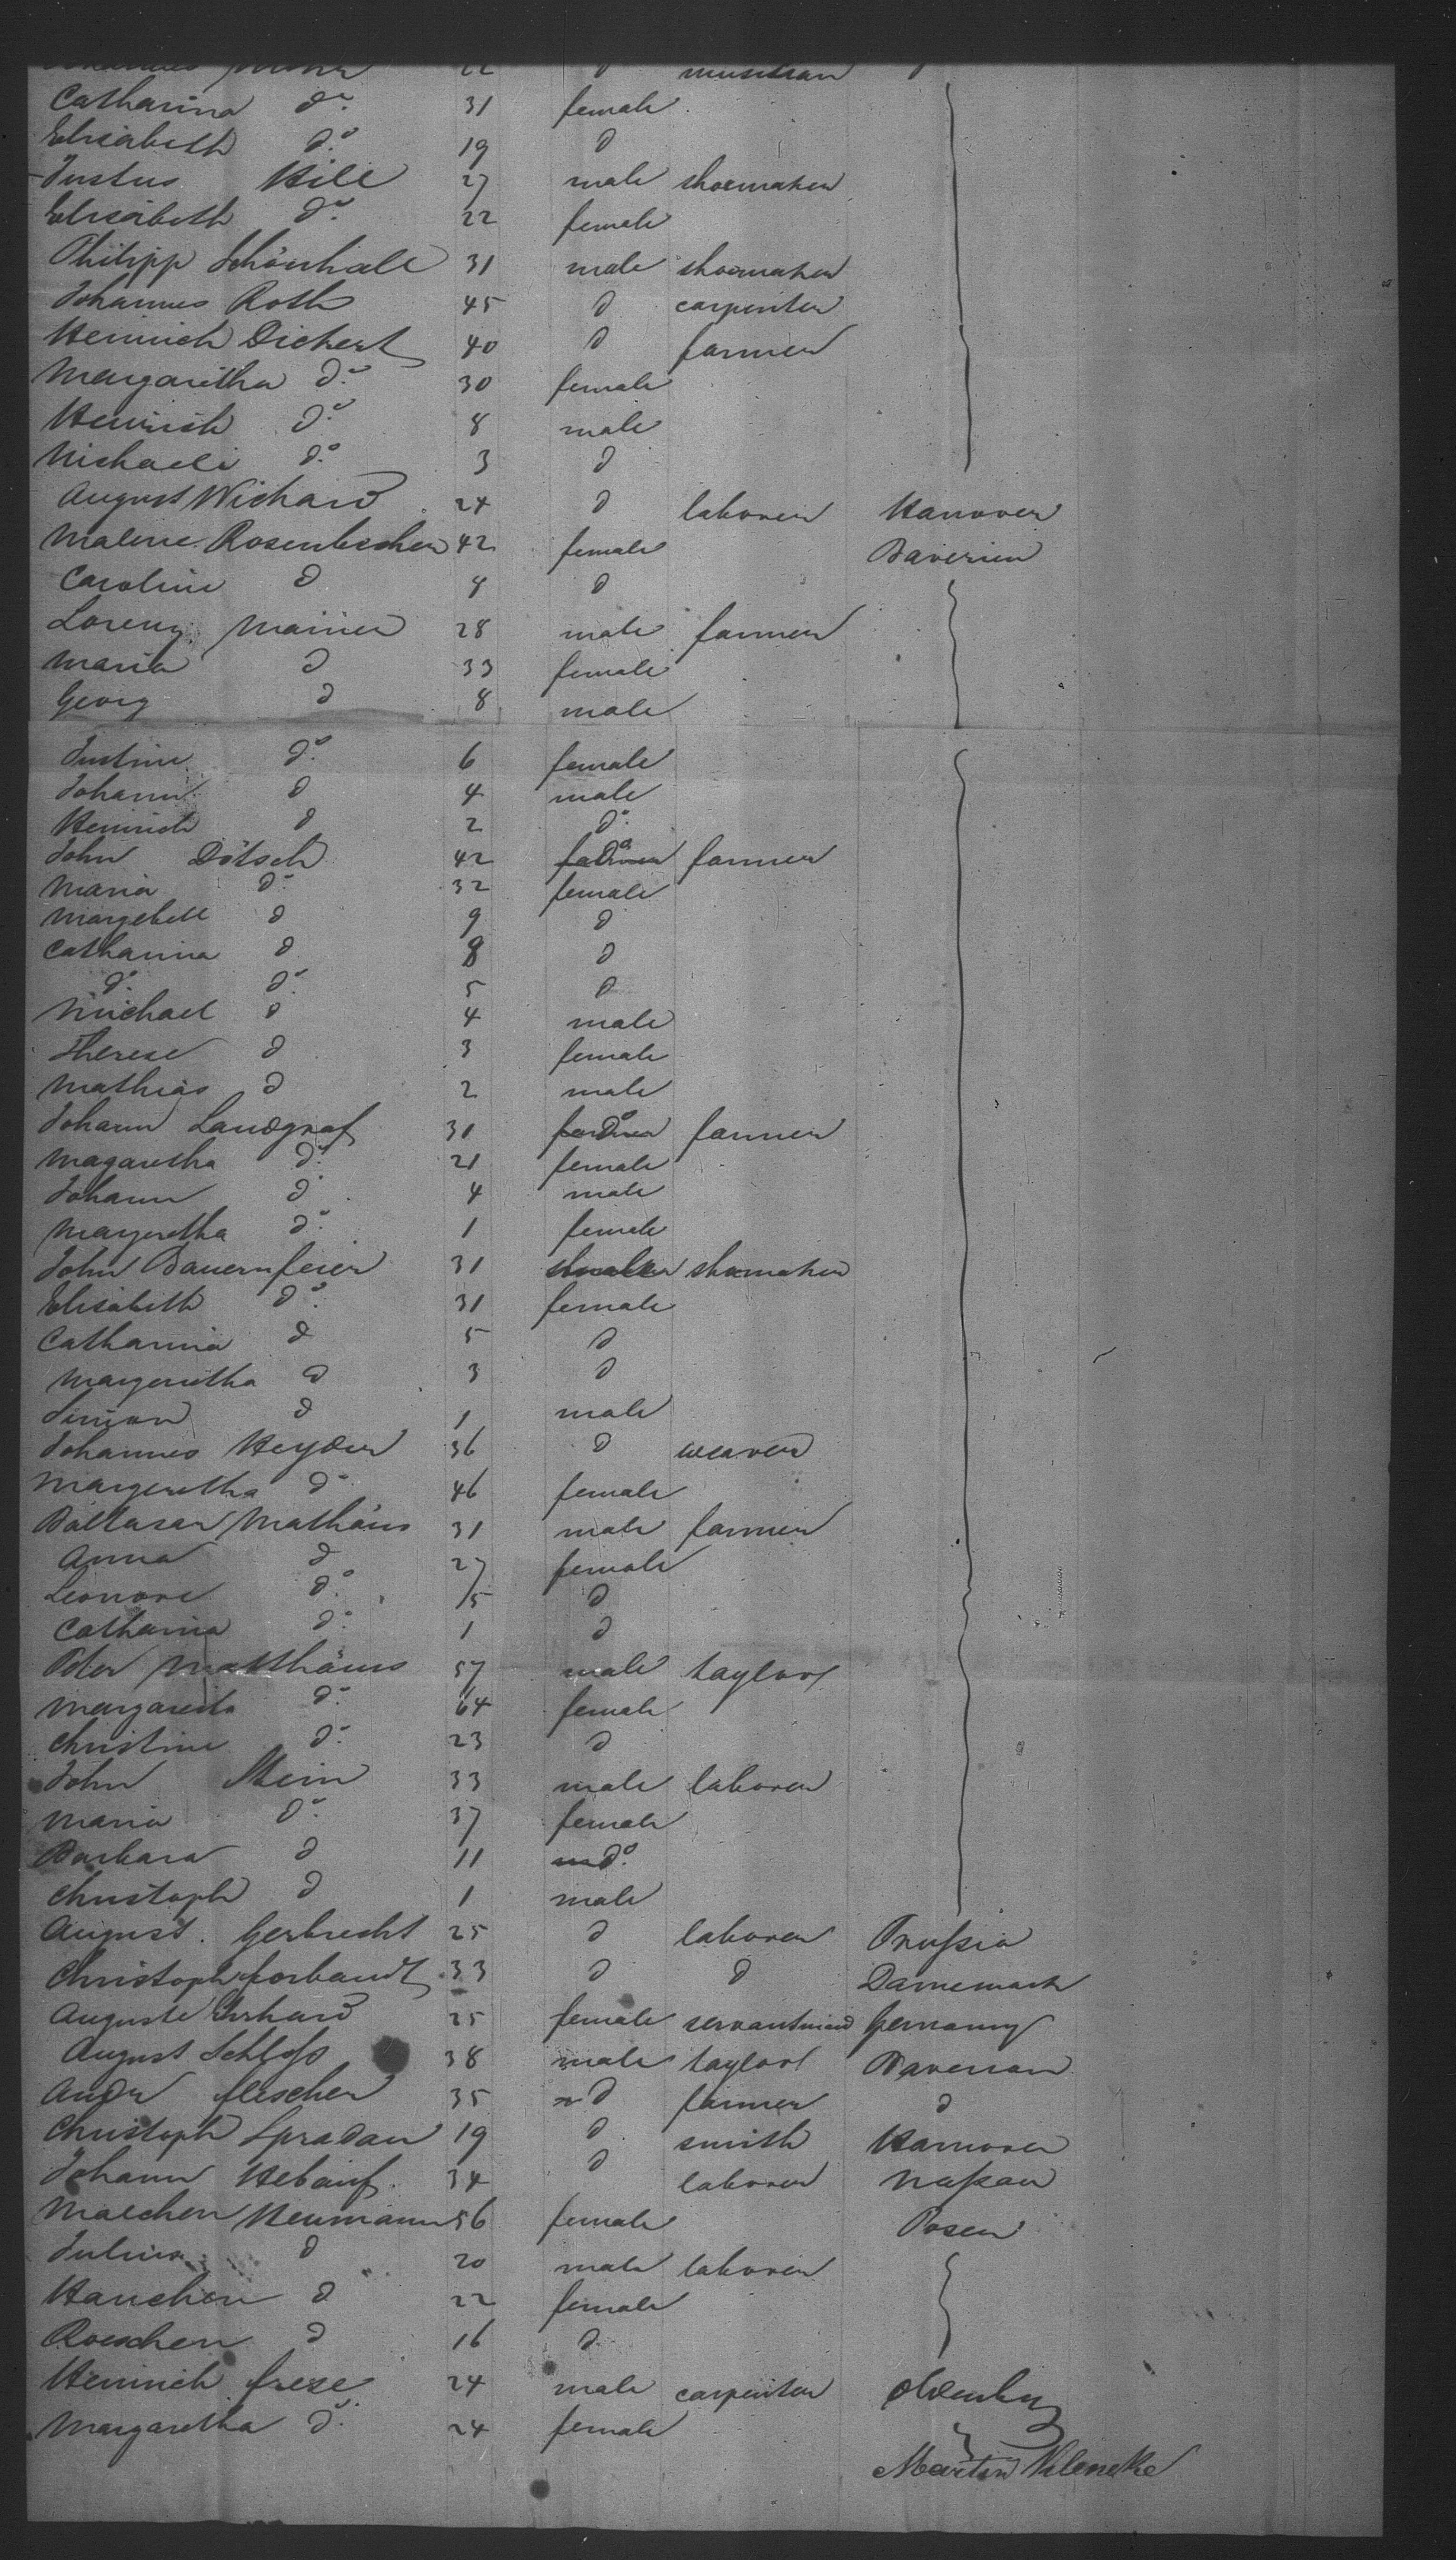 Mohr 22 d musician d
Catharina do. 31 female
Elisabeth do. 19 d
Justus Hill 27 male shoemaker
Elisabeth do. 22 female
Philipp Schönhals 31 male shoemaker
Johannes Roth 45 d carpenter
Heinrich Dickert 40 d farmer
Margaritha do. 30 female
Heinrich do. 8 male
Michaeli do. 3 d
August Wichard 24 d laborer Hanover
Malene Rosenbecher 42 female Baverien
Caroline d 8 d
Lorenz Mainer 28 male farmer
Maria d 33 female
Georg d 8 male
Justine do. 6 female
Johann d 4 male
Heinrich d 2 do.
John Dötsch 42 do farmer
Maria do. 32 female
Margebell d 9 d
Catharina d 8 d
do. do. 5 d
Michael d 4 male
Therese d 3 female
Mathias d 2 male
Johann Landgraf 30 do farmer
Magaretha do. 21 female
Johann d 4 male
Margeretha do. 1 female
John Bauernfeier 31 shoemaker
Elisabeth do. 31 female
Catharina d 5 d
Margeretha d 3 d
Simon d 1 male
Johannes Heyder 36 d weaver
Margeretha do. 46 female
Baltasar Mathäus 31 male farmer
Anna d 27 female
Leonore do. 15 d
Catharina do. 1 d
Peter Matthäus 57 male taylor
Margareta do. 64 female
Christine do. 23 d
John Stein 33 male laborer
Maria do. 37 female
Barbara d 11 do.
Christoph d 1 male
August Gerbrecht 25 d laborer Prußia
Christoph forbandt 33 d d Dannemark
Auguste Erhard 25 female servantmaid Germany
August Schloß 38 male taylor Baverian
Andr fleischer 35 d farmer d
Christoph Spradau 19 d smith Hannover
Johann Hebauf 34 d laborer Naßau
Malchen Neumann 56 female Posen
Julius d 20 male laborer
Hanchen d 22 female
Roeschen d 16 d
Heinrich frese 24 male carpenter Oldenburg
Margaretha do. 24 female
Martin Wieneke